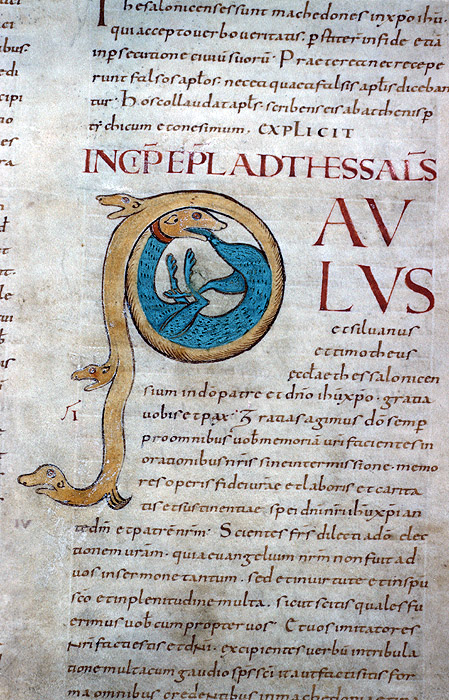 hesalonicenses sunt machedones in xpo ihu.
qui accepto verbo veritatis. pstiter in fide etiā
in psecutione civiū suorū. Praeterea nec recepe
runt falsos aplos. nec ea quae a falsis aplis diceban
tur. Hos collaudat apls. scribens eis ab athenis p
tychicum et onesimum. EXPLICIT
INCIP EPLA AD THESSALS
PAV
LVS
et silvanus
et timotheus
eccłae thessalonicen
sium in dō patre et dno ihu xpo. gratia
vobis et pax. Gratias agimus dō semp
pro omnibus vob memoriā vri facientes in
orationibus nris sine intermissione. memo
res operis fidei vrae et laboris et carita
tis et sustinentiae. spei dni nri ihu xpi an
te dm et patrē nrm. Scientes frs dilecti a dō. elec
tionem vram. quia evangelium nrm non fuit ad
vos in sermone tantum. sed et in virtute et in spu
sco et in plenitudine multa. sicut scitis quales fu
erimus vob propter vos. Et vos imitatores
nri facti estis et dni. excipientes verbū in tribula
tione multa cum gaudio sps sci ita ut facti sitis for
ma omnibus credentibus in machedonia